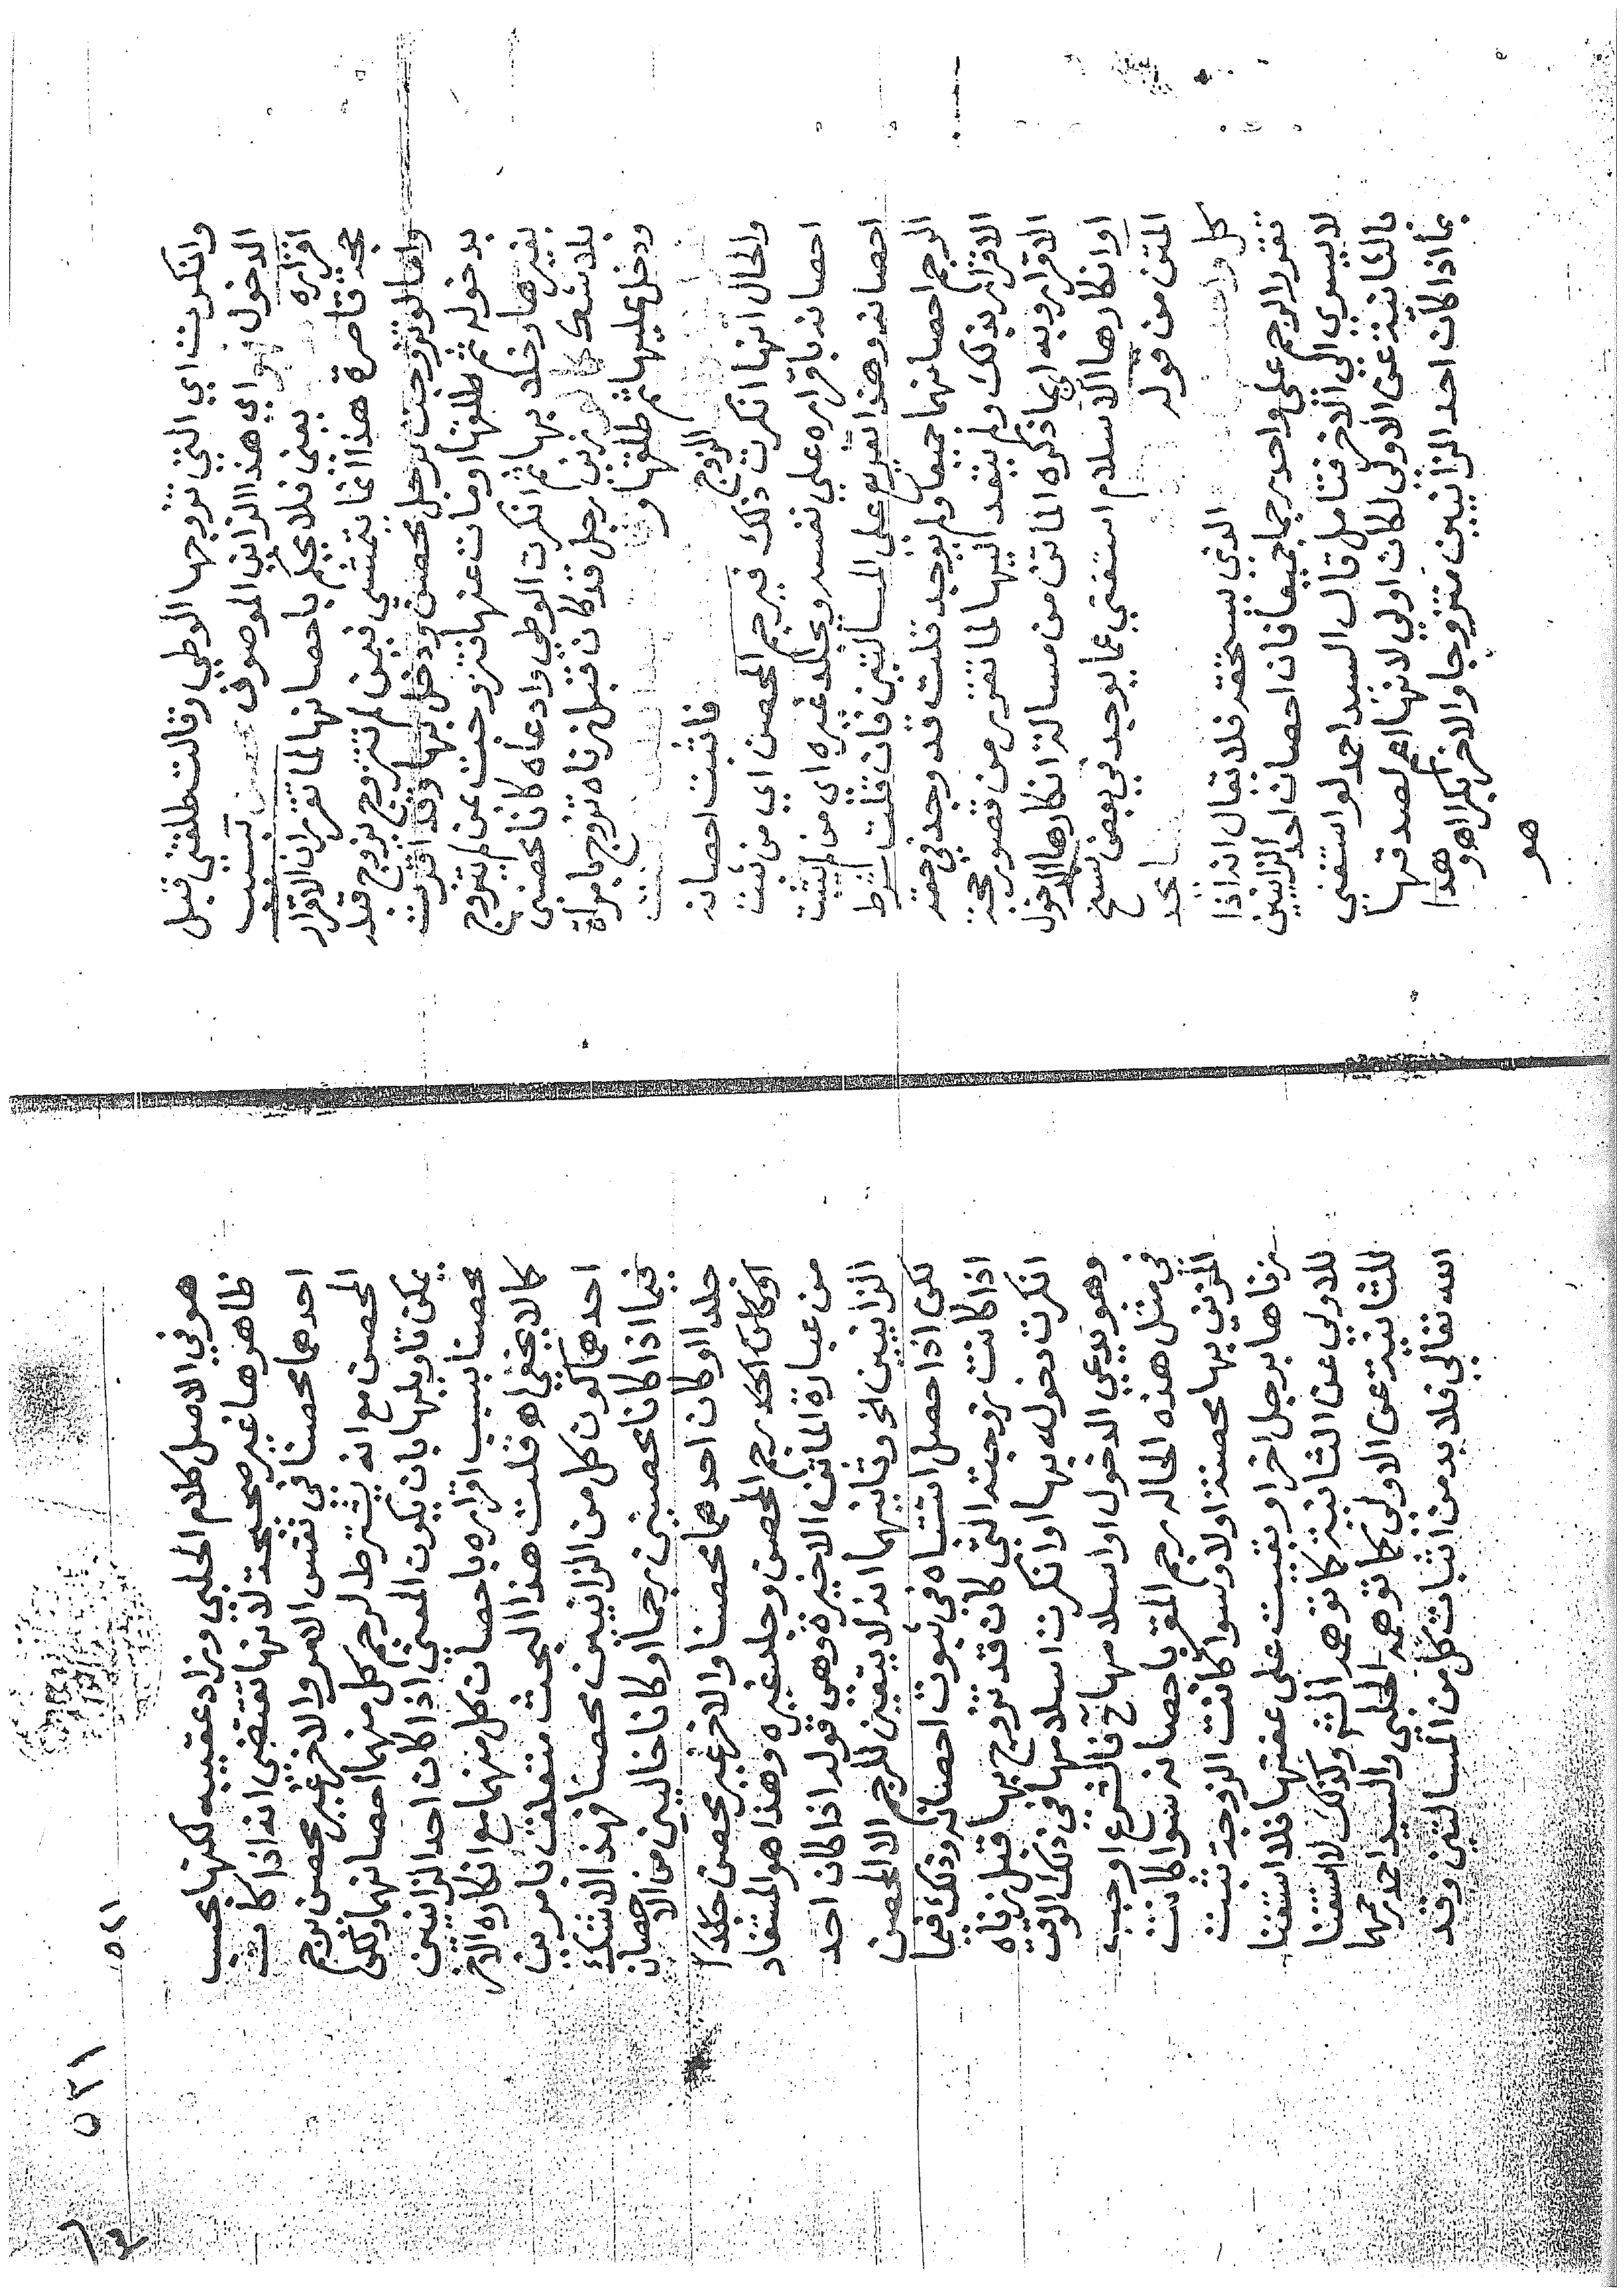 وانكرت اي التي تزوجها الوطي وقالت طلقني قبل
الدخول نهو اي هذا الزاني الموصوف بسبب
اقراره يعني فلا يحكم باحصانها لما تقرر ان الاقرار
حجة قاصرة هذا انما يتمشي فيمن لم تتزوج بزوج قد
واما لو تزوجت برجل محصن ودخل بها وقد اقرت
بدخوله ثم طلقها او مات عنها فتزوجت بمن لم يتزوج
بغيرها ودخل بها ثم انكرت الوطي وادعاه كانا محصنين
بلا شك كما لو زني رجل قد كان قبل زناه تزوج بامراة
ودخل عليها ثم طلقها و
الزوج فاثبت احصانه
والحال انها انكرت ذلك فيرجم المحصن اي من ثبت
احصانه باقراره علي نفسه ويجلد غيره اي من لم يثبت
احصانه وهذا تفريع علي المسالتين فان قلت شرط
الرجم احصانهما جميعا ولم يوجد قلت قد وجد في حقه
الاقرار بذلك ولم يتعد اليها لما تقرر من قصور حجة
الاقرار وبه اي بما ذكره الماتن من مسالة انكارها الدخول
او انكارها الاسلام استغني عما يوجد في بعض نسخ
المتن من قوله
كل واحد الذي يستحقه فلا يقال انه اذا
تقرر لا لرجم علي واحد رجما جميعا فان احصان احد الزانيين
لا يسري الي الاخر فتامل قال السيد احمد لو استغني
بالثانية عن الاولي لكان اولي لانها اعم لصدقها
بما اذا كان احد الزانيين متزوجا والاخر بكرا اهو هذا
هو
١٢٥١
٥٢١
هو في الاصل كلام الحلبي وزاد عقيبه لكنها بحسب
ظاهرها غير صحيحة لانها تقتضي انه اذا كان
احدهما محصنا في نفس الامر والاخر غير محصن يرجم
المحصن مع انه يشترط لرجم كل منهما احصانهما ولكن
يمكن تاويلها بان يكون المعني اذا كان احد الزانيين
محصنا بسبب اقراره باحصان كل منهما مع انكاره الاخر
كما لا يخفي اهو قلت هذا البحث متعلق بامرين
احدهما كون كل من الزانيين محصنا فهذا لا شك
فيما اذا كانا محصنين رجما او كانا خاليين من الاحصان
جلدا او كان احدهما محصنا والاخر غير محصن جلدا
او كان احدهما رجم المحصن وجلد غيره وهذا هو المستفاد
من عبارة الماتن الاخيرة وهي قوله اذا كان احد
الزانيين الخ وثانيهما انه لا يتعين للرجم الا المحصن
لكن اذا حصل اشتباه في ثبوت احصانه وذلك فيما
اذا كانت زوجته التي كان قد تزوج بها قبل زناه
انكرت دخوله بها او انكرت اسلامها في ذلك الوقت
وهو يدعي الدخول او اسلامها ح فالشرع اوجب
في مثل هذه الحاله رجم المقر باحصانه سوا كانت
المزني بها محصنة او لا وسوا كانت الزوجة ثبت
زناها برجل اخر او بقيت علي عفتها فلا استغنا
للاولي عن الثانية كما توهمه الشم وكذلك لا استغنا
للثانية عن الاولي كما توهمه الحلبي والسيد احمد رحمهما
الله تعالي فلا بد من اثبات كل من المسالتين وقد